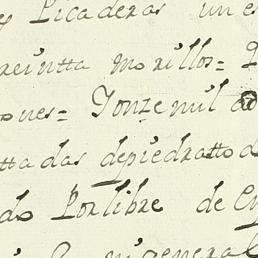 Picaderas un
treintta morillos=
ones= Yonze mil
ttadas depiedratto
do Porlibre de
general